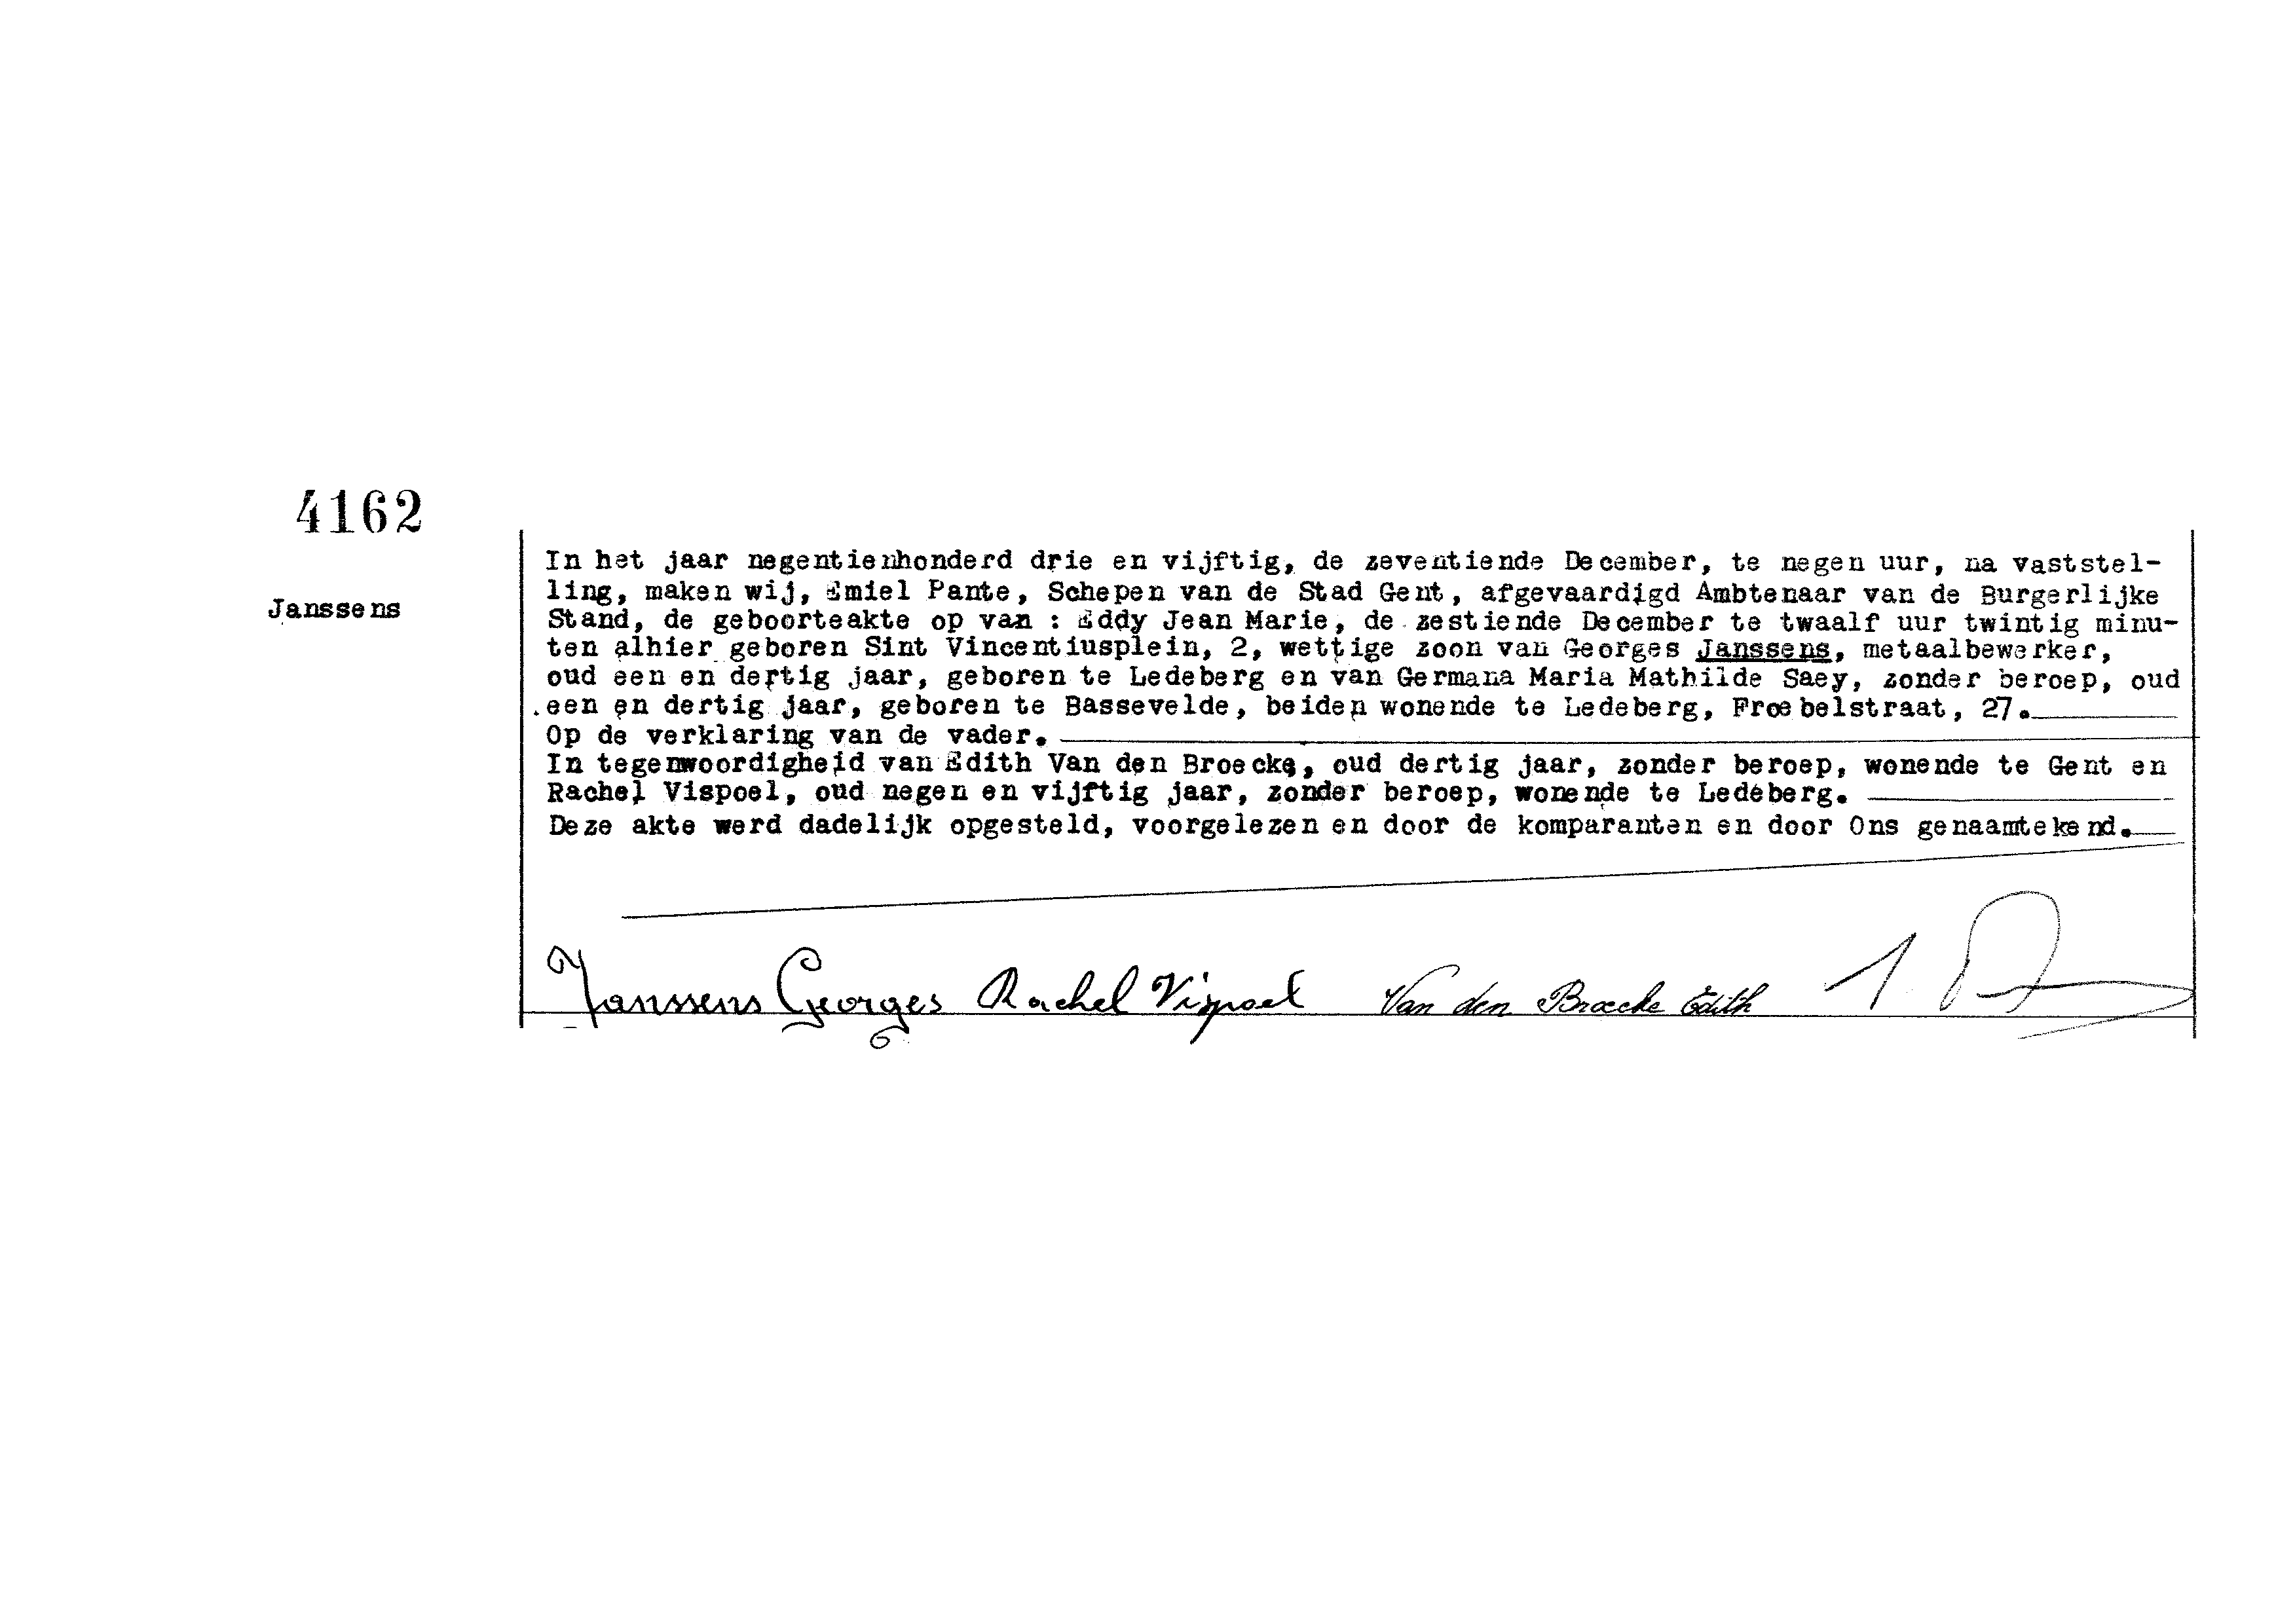 4162
Janssens
In het jaar negentienhonderd drie en vijftig, de zeventiende December, te negen uur, na vaststel-
ling, maken wij, Emiel Pante, Schepen van de Stad Gent, afgevaardigd Ambtenaar van de Burgerlijke
Stand, de geboorteakte op van : Eddy Jean Marie, de zestiende December te twaalf uur twintig minu-
ten alhier geboren Sint Vincentiusplein, 2, wettige zoon van Georges Janssens, metaalbewerker,
oud een en dertig jaar, geboren te Ledeberg en van Germana Maria Mathilde Saey, zonder beroep, oud
een en dertig jaar, geboren te Bassevelde, beiden wonende te Ledeberg, Froebelstraat, 27.
Op de verklaring van de vader.
In tegenwoordigheid van Edith Van den Broecke, oud dertig jaar, zonder beroep, wonende te Gent en
Rachel Vispoel, oud negen en vijftig jaar, zonder beroep, wonende te Ledeberg.
Deze akte werd dadelijk opgesteld, voorgelezen en door de komparanten en door Ons genaamtekend.
Janssens Georges Rachel Vispoel Van den Broecke Edith